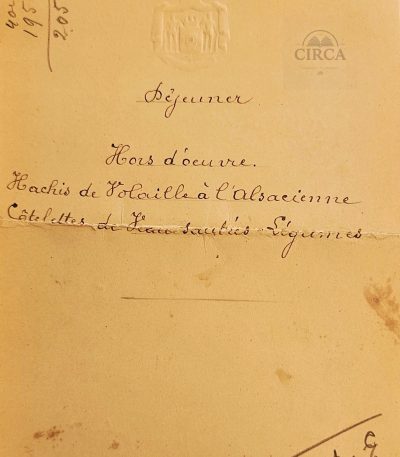 195
205
CIRCA
Déjeuner
Hors d'oeuvre.
Hachis de Volaille à l'Alsacienne
Côtelettes de Veau sautées Légumes